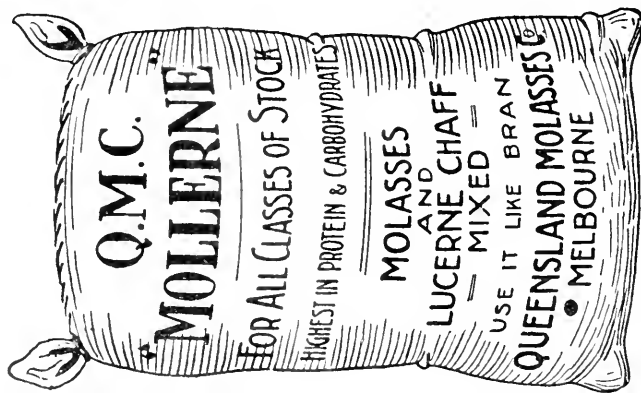 Q.M.C.
"MOLLERNE"
FOR ALL CLASSES OF STOCK
HIGHEST IN PROTEIN & CARBOHYDRATES
MOLASSES
AND
LUCERNE CHAFF
— MIXED —
USE IT LIKE BRAN
QUEENSLAND MOLASSES Co
• MELBOURNE